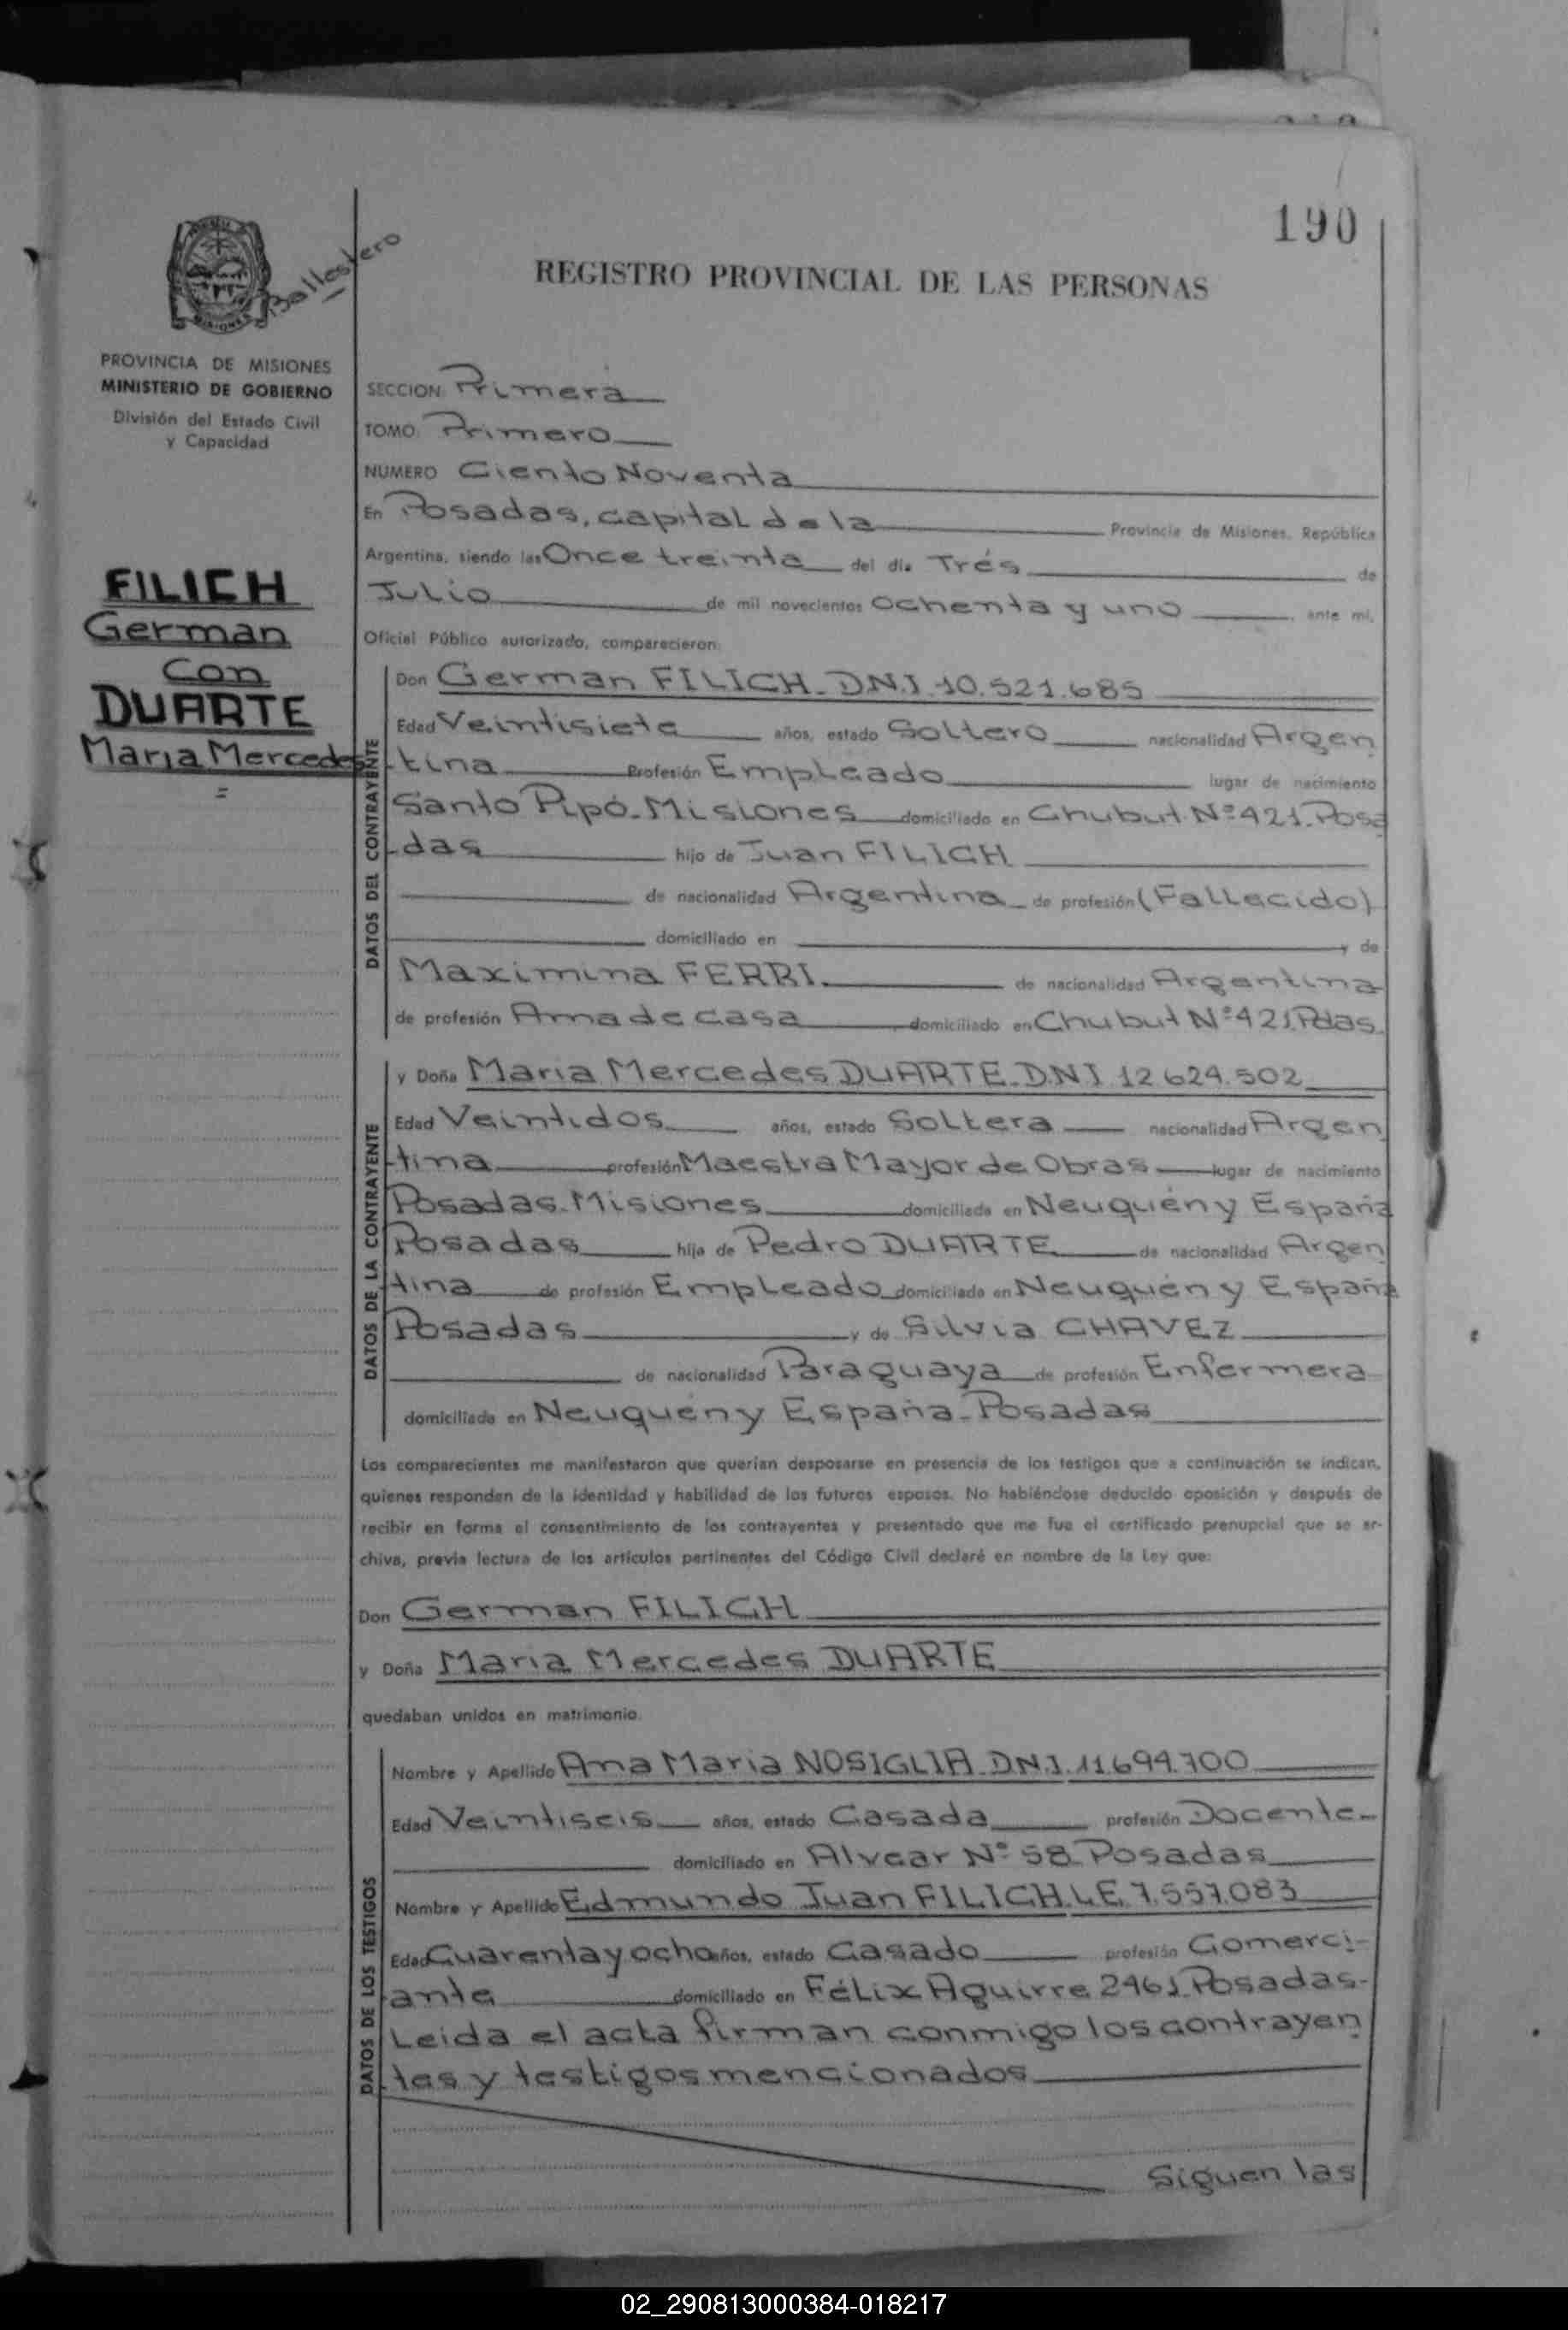 190
Ballestero
MISIONES
REGISTRO PROVINCIAL DE LAS PERSONAS
PROVINCIA DE MISIONES
MINISTERIO DE GOBIERNO
División del Estado Civil
y Capacidad
FILICH
German
Con
DUARTE
Maria Mercedes
SECCION: Primera
TOMO: Primero
NUMERO Ciento Noventa
En Posadas, capital de la Provincia de Misiones, República
Argentina, siendo las Once treinta del día Trés de
Julio de mil novecientos Ochenta y uno, ante mi,
Oficial Público autorizado, comparecieron:
DATOS DEL CONTRAYENTE
Don German FILICH. D.N.I 10.521.685
Edad Veintisiete años, estado Soltero nacionalidad Argen
tina Profesión Empleado lugar de nacimiento
Santo Pipó. Misiones domiciliado en Chubut Nº 421. Posa
das hijo de Juan FILICH
de nacionalidad Argentina de profesión (Fallecido)
domiciliado en y de
Maximina FERRI. de nacionalidad Argentina
de profesión Ama de casa domiciliado en Chubut Nº 421. Pdas.
DATOS DE LA CONTRAYENTE
y Doña Maria Mercedes DUARTE. D.N.I 12.624.502
Edad Veintidos años, estado Soltera nacionalidad Argen
tina profesión Maestra Mayor de Obras lugar de nacimiento
Posadas. Misiones domiciliada en Neuquén y España
Posadas hija de Pedro DUARTE de nacionalidad Argen
tina de profesión Empleado domiciliado en Neuquén y España
Posadas y de Silvia CHAVEZ
de nacionalidad Paraguaya de profesión Enfermera
domiciliada en Neuquén y España. Posadas
Los comparecientes me manifestaron que querían desposarse en presencia de los testigos que a continuación se indican,
quienes responden de la identidad y habilidad de los futuros esposos. No habiéndose deducido oposición y después de
recibir en forma el consentimiento de los contrayentes y presentado que me fue el certificado prenupcial que se ar-
chiva, previa lectura de los artículos pertinentes del Código Civil declaré en nombre de la Ley que:
Don German FILICH
y Doña Maria Mercedes DUARTE
quedaban unidos en matrimonio.
DATOS DE LOS TESTIGOS
Nombre y Apellido Ana Maria NOSIGLIA. D.N.I. 11.694.700
Edad Veintiseis años, estado Casada profesión Docente
domiciliado en Alvear Nº 58. Posadas
Nombre y Apellido Edmundo Juan FILICH. L.E. 7.557.083
Edad Cuarenta y ocho años, estado Casado profesión Comerci-
ante domiciliado en Félix Aguirre 2461. Posadas.
Leida el acta firman conmigo los contrayen
tes y testigos mencionados
Siguen las
02_290813000384-018217